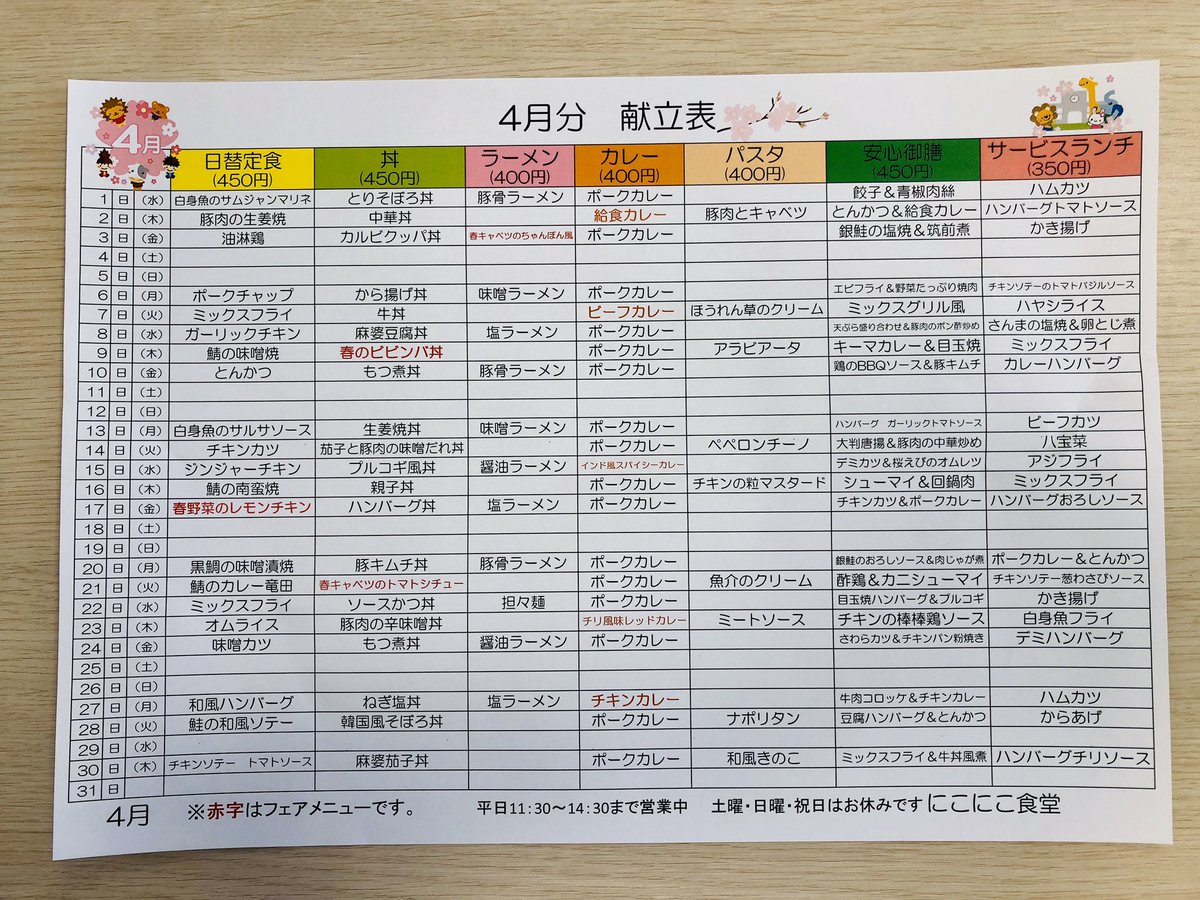 4月
4月分 献立表
日替定食 丼 ラーメン カレー パスタ 安心御膳 サービスランチ
(450円) (450円) (400円) (400円) (400円) (450円) (350円)
1 日 (水) 白身魚のサムジャンマリネ とりそぼろ丼 豚骨ラーメン ポークカレー 餃子＆青椒肉絲 ハムカツ
2 日 (木) 豚肉の生姜焼 中華丼 給食カレー 豚肉とキャベツ とんかつ＆給食カレー ハンバーグトマトソース
3 日 (金) 油淋鶏 カルビクッパ丼 春キャベツのちゃんぽん風 ポークカレー 銀鮭の塩焼＆筑前煮 かき揚げ
4 日 (土)
5 日 (日)
6 日 (月) ポークチャップ から揚げ丼 味噌ラーメン ポークカレー エビフライ＆野菜たっぷり焼肉 チキンソテーのトマトバジルソース
7 日 (火) ミックスフライ 牛丼 ビーフカレー ほうれん草のクリーム ミックスグリル風 ハヤシライス
8 日 (水) ガーリックチキン 麻婆豆腐丼 塩ラーメン ポークカレー 天ぷら盛り合わせ＆豚肉のポン酢炒め さんまの塩焼＆卵とじ煮
9 日 (木) 鯖の味噌焼 春のビビンバ丼 ポークカレー アラビアータ キーマカレー＆目玉焼 ミックスフライ
10 日 (金) とんかつ もつ煮丼 豚骨ラーメン ポークカレー 鶏のBBQソース＆豚キムチ カレーハンバーグ
11 日 (土)
12 日 (日)
13 日 (月) 白身魚のサルサソース 生姜焼丼 味噌ラーメン ポークカレー ハンバーグ ガーリックトマトソース ビーフカツ
14 日 (火) チキンカツ 茄子と豚肉の味噌だれ丼 ポークカレー ペペロンチーノ 大判唐揚＆豚肉の中華炒め 八宝菜
15 日 (水) ジンジャーチキン プルコギ風丼 醤油ラーメン インド風スパイシーカレー デミカツ＆桜えびのオムレツ アジフライ
16 日 (木) 鯖の南蛮焼 親子丼 ポークカレー チキンの粒マスタード シューマイ＆回鍋肉 ミックスフライ
17 日 (金) 春野菜のレモンチキン ハンバーグ丼 塩ラーメン ポークカレー チキンカツ＆ポークカレー ハンバーグおろしソース
18 日 (土)
19 日 (日)
20 日 (月) 黒鯛の味噌漬焼 豚キムチ丼 豚骨ラーメン ポークカレー 銀鮭のおろしソース＆肉じゃが煮 ポークカレー＆とんかつ
21 日 (火) 鯖のカレー竜田 春キャベツのトマトシチュー ポークカレー 魚介のクリーム 酢鶏＆カニシューマイ チキンソテー葱わさびソース
22 日 (水) ミックスフライ ソースかつ丼 担々麺 ポークカレー 目玉焼ハンバーグ＆プルコギ かき揚げ
23 日 (木) オムライス 豚肉の辛味噌丼 チリ風味レッドカレー ミートソース チキンの棒棒鶏ソース 白身魚フライ
24 日 (金) 味噌カツ もつ煮丼 醤油ラーメン ポークカレー さわらカツ＆チキンパン粉焼き デミハンバーグ
25 日 (土)
26 日 (日)
27 日 (月) 和風ハンバーグ ねぎ塩丼 塩ラーメン チキンカレー 牛肉コロッケ＆チキンカレー ハムカツ
28 日 (火) 鮭の和風ソテー 韓国風そぼろ丼 ポークカレー ナポリタン 豆腐ハンバーグ＆とんかつ からあげ
29 日 (水)
30 日 (木) チキンソテー トマトソース 麻婆茄子丼 ポークカレー 和風きのこ ミックスフライ＆牛丼風煮 ハンバーグチリソース
31 日
4月 ※赤字はフェアメニューです。 平日11:30〜14:30まで営業中 土曜・日曜・祝日はお休みです にこにこ食堂